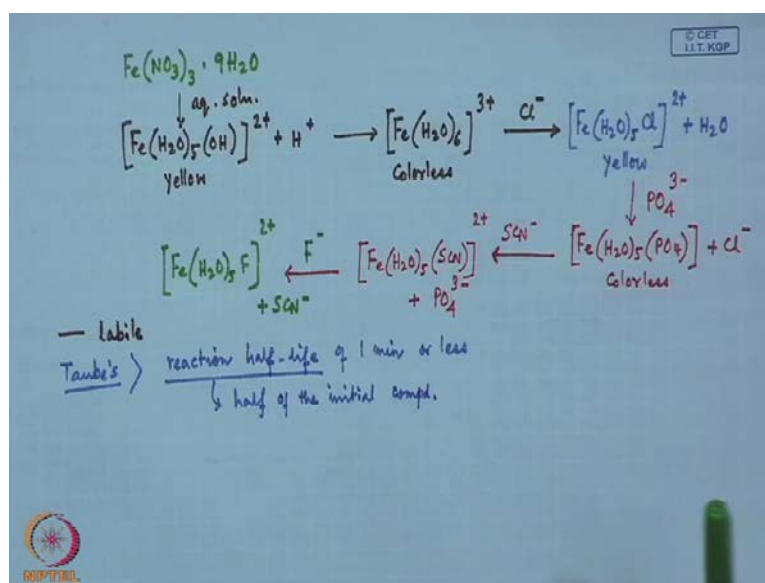 © CET
I.I.T. KGP
Fe(NO₃)₃ · 9H₂O
↓ aq. soln.
[Fe(H₂O)₅(OH)]²⁺ + H⁺ → [Fe(H₂O)₆]³⁺ Cl⁻ → [Fe(H₂O)₅Cl]²⁺ + H₂O
yellow Colorless yellow
↓ PO₄³⁻
[Fe(H₂O)₅F]²⁺ + SCN⁻ ← F⁻ [Fe(H₂O)₅(SCN)]²⁺ + PO₄³⁻ ← SCN⁻ [Fe(H₂O)₅(PO₄)] + Cl⁻
Colorless
— Labile
Taube's > reaction half-life of 1 min or less
↳ half of the initial compd.
NPTEL